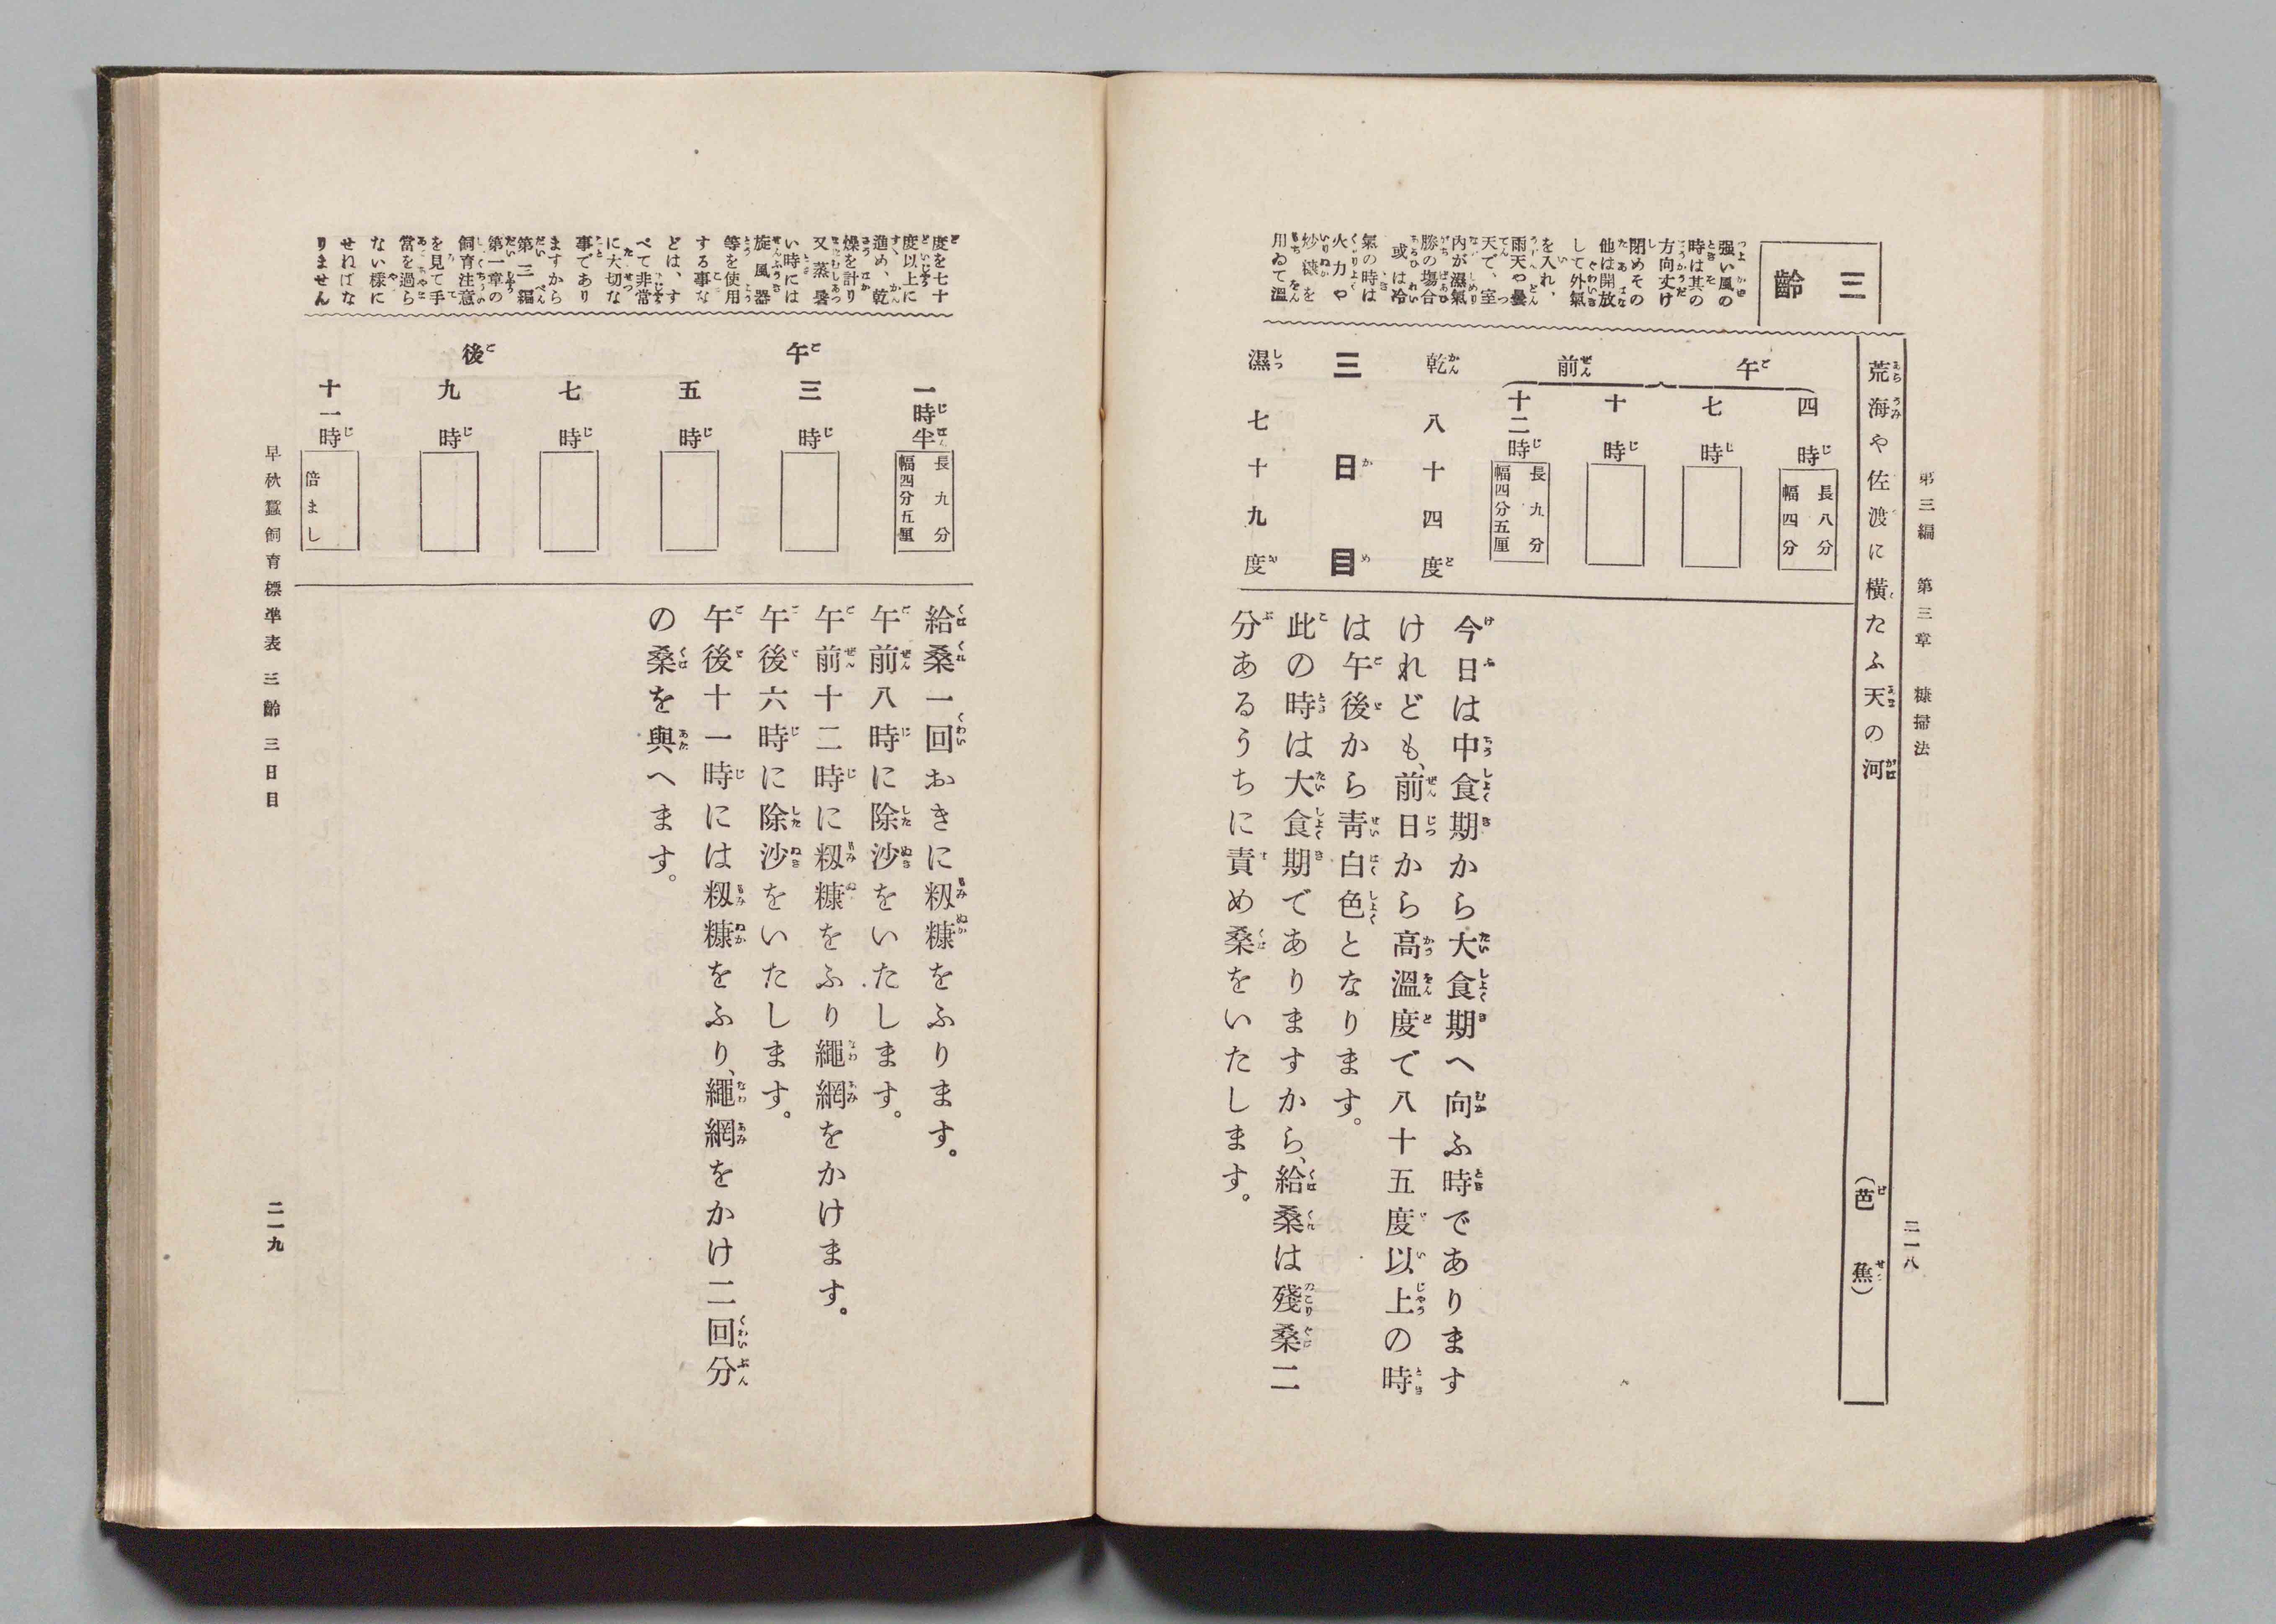 第三編　第三章　糠掃法
三一八
荒海や佐渡に横たふ天の河　（芭蕉）
三齡
强い風の
時は其の
方向丈け
閉めその
他は開放
して外氣
を入れ、
雨天や曇
天で、室
內が濕氣
勝の塲合
或は冷
氣の時は
火力や
炒糠を
用ゐて溫
午前
四時　長八分　幅四分
七時
十時
十二時　長九分　幅四分五厘
乾　八十四度
三日目
濕　七十九度
今日は中食期から大食期へ向ふ時であります
けれども、前日から高溫度で八十五度以上の時
は午後から靑白色となります。
此の時は大食期でありますから、給桑は殘桑二
分あるうちに責め桑をいたします。
度を七十
度以上に
進め、乾
燥を計り
又蒸暑
い時には
旋風器
等を使用
する事な
どは、す
べて非常
に大切な
事であり
ますから
第三編
第一章の
飼育注意
を見て手
當を過ら
ない樣に
せねばな
りません
午後
一時半　長九分　幅四分五厘
三時
五時
七時
九時
十一時　倍まし
給桑一回おきに籾糠をふります。
午前八時に除沙をいたします。
午前十二時に籾糠をふり繩網をかけます。
午後六時に除沙をいたします。
午後十一時には籾糠をふり、繩網をかけ二回分
の桑を與へます。
早秋蠶飼育標準表　三齡　三日目
二一九